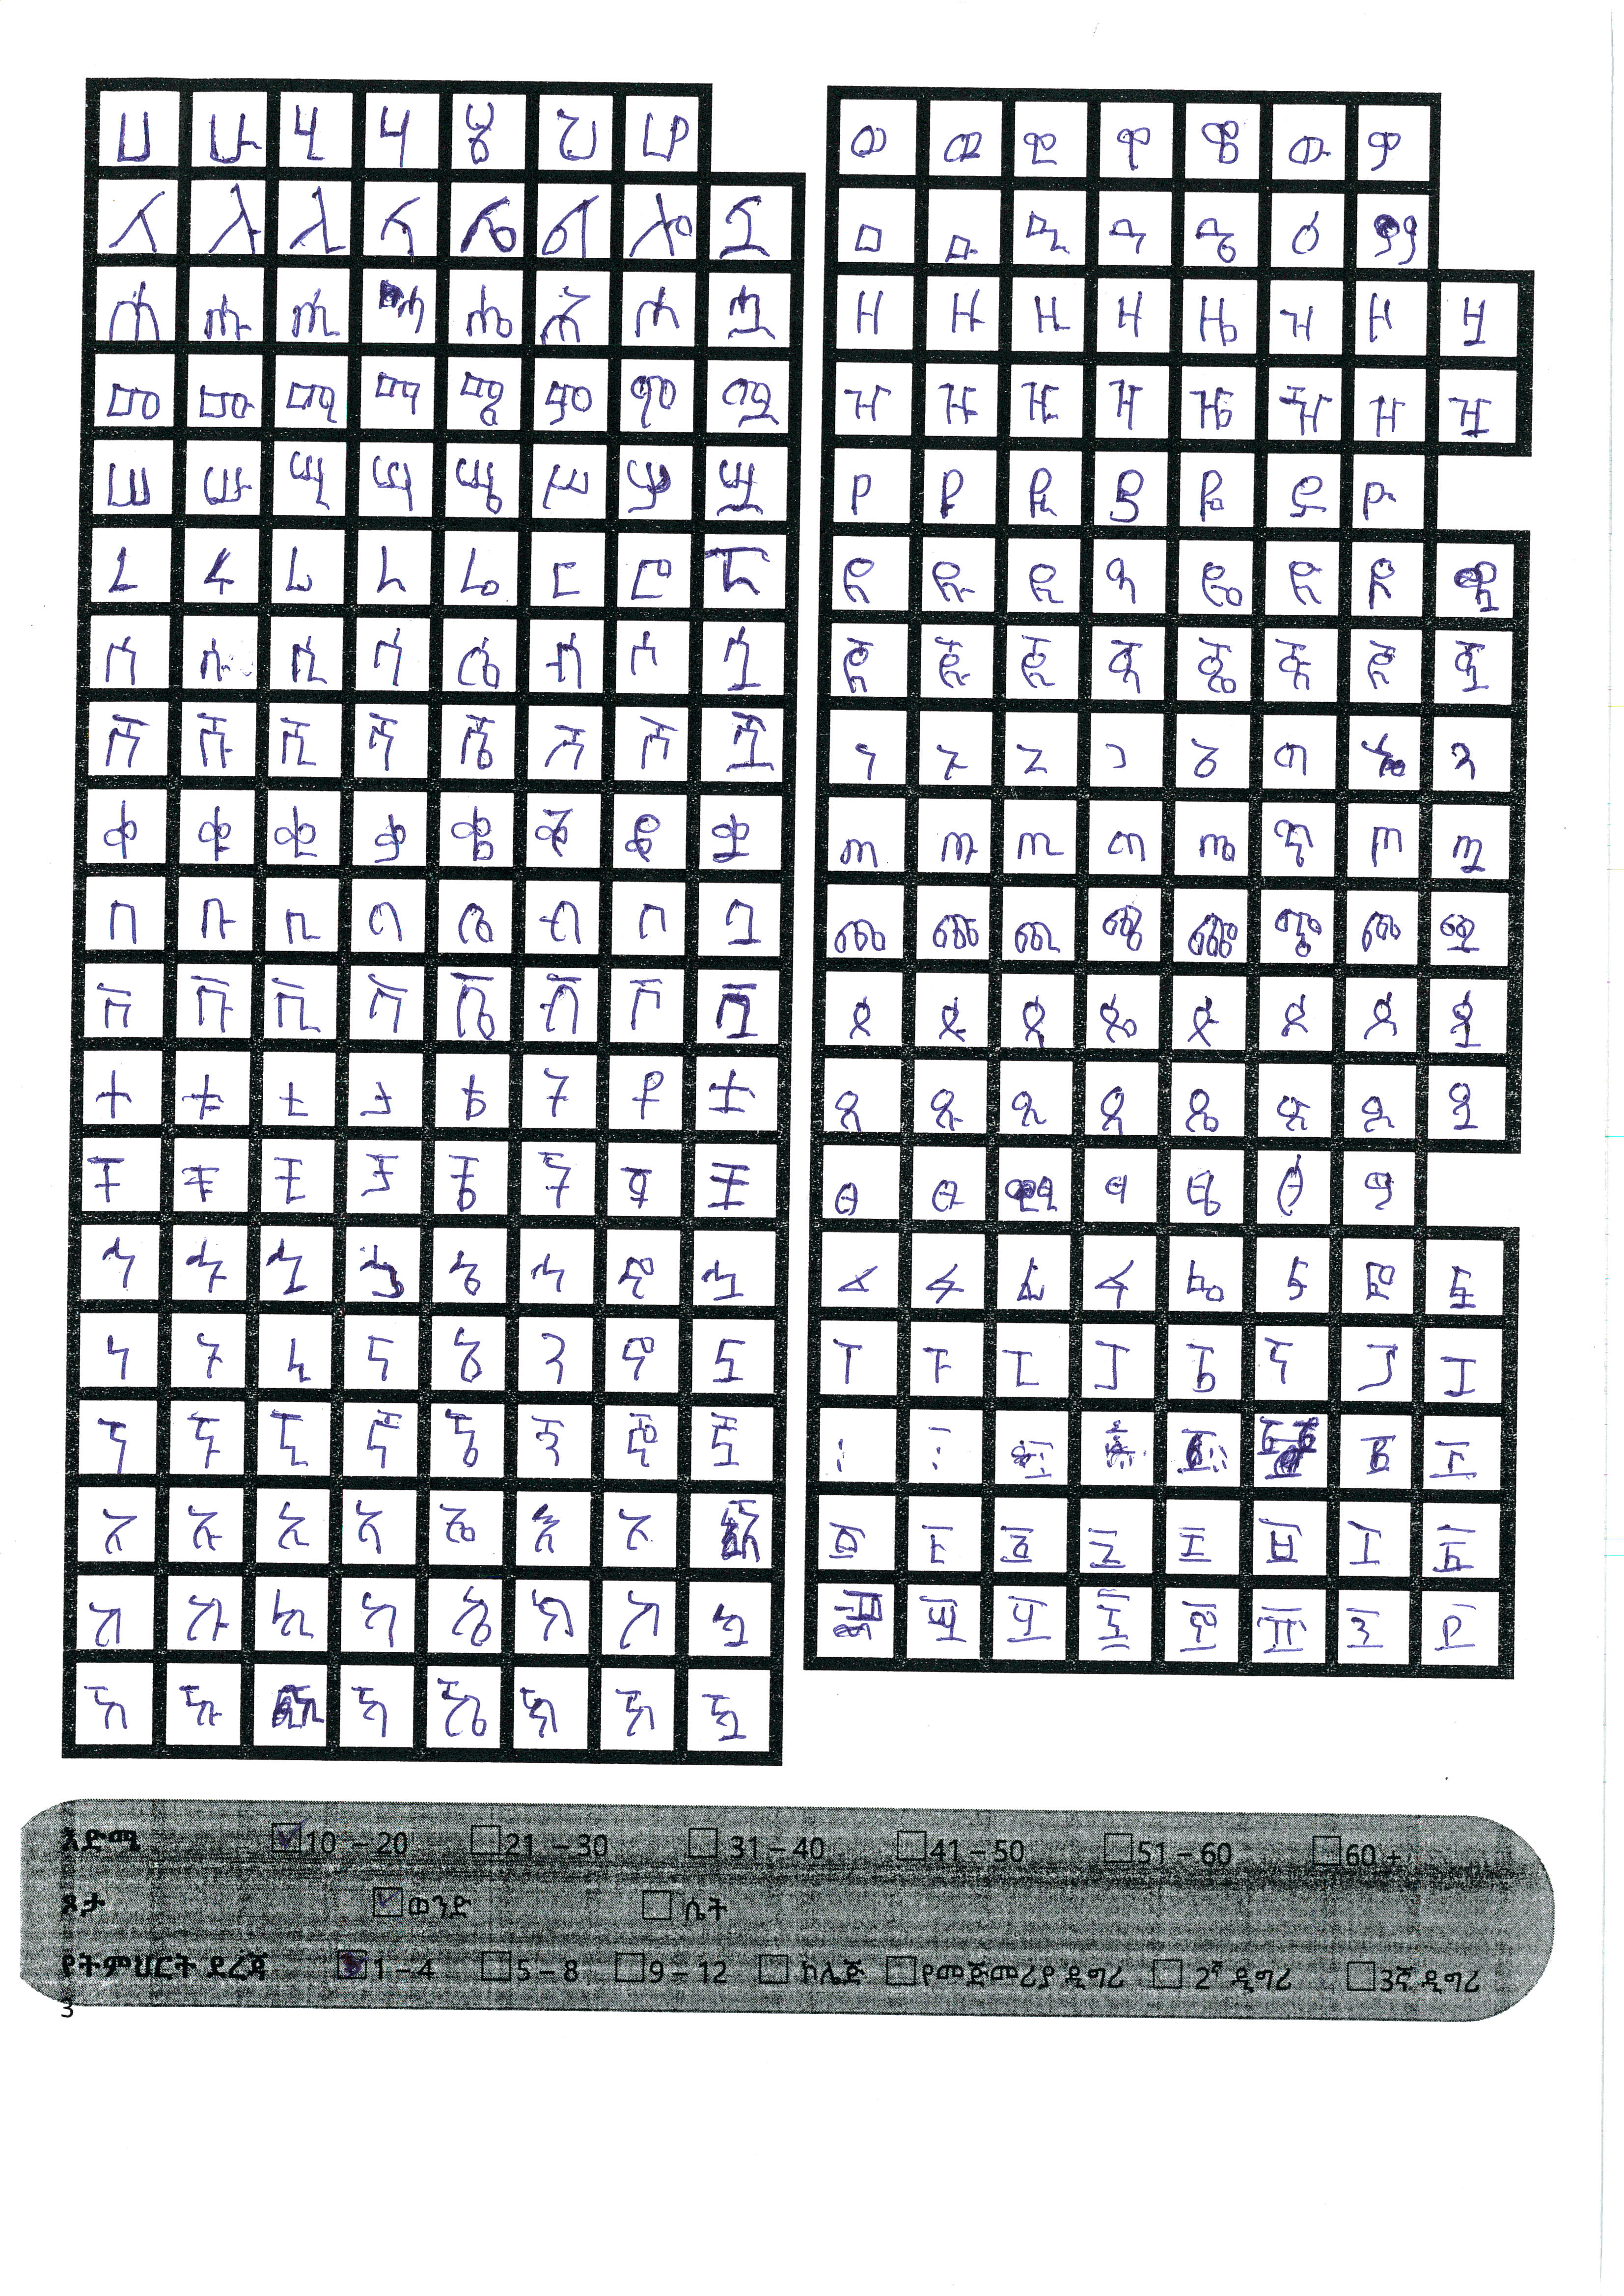 ሀ ሁ ሂ ሃ ሄ ህ ሆ
ለ ሉ ሊ ላ ሌ ል ሎ ሏ
ሐ ሑ ሒ ሓ ሔ ሕ ሖ ሗ
መ ሙ ሚ ማ ሜ ም ሞ ሟ
ሠ ሡ ሢ ሣ ሤ ሥ ሦ ሧ
ረ ሩ ሪ ራ ሬ ር ሮ ሯ
ሰ ሱ ሲ ሳ ሴ ስ ሶ ሷ
ሸ ሹ ሺ ሻ ሼ ሽ ሾ ሿ
ቀ ቁ ቂ ቃ ቄ ቅ ቆ ቋ
በ ቡ ቢ ባ ቤ ብ ቦ ቧ
ቨ ቩ ቪ ቫ ቬ ቭ ቮ ቯ
ተ ቱ ቲ ታ ቴ ት ቶ ቷ
ቸ ቹ ቺ ቻ ቼ ች ቾ ቿ
ኀ ኁ ኂ ኃ ኄ ኅ ኆ ኋ
ነ ኑ ኒ ና ኔ ን ኖ ኗ
ኘ ኙ ኚ ኛ ኜ ኝ ኞ ኟ
አ ኡ ኢ ኣ ኤ እ ኦ
ከ ኩ ኪ ካ ኬ ክ ኮ ኳ
ኸ ኹ ኺ ኻ ኼ ኽ ኾ ዃ
ወ ዉ ዊ ዋ ዌ ው ዎ
ዐ ዑ ዒ ዓ ዔ ዕ ዖ
ዘ ዙ ዚ ዛ ዜ ዝ ዞ ዟ
ዠ ዡ ዢ ዣ ዤ ዥ ዦ ዧ
የ ዩ ዪ ያ ዬ ይ ዮ
ደ ዱ ዲ ዳ ዴ ድ ዶ ዷ
ጀ ጁ ጂ ጃ ጄ ጅ ጆ ጇ
ገ ጉ ጊ ጋ ጌ ግ ጎ ጓ
ጠ ጡ ጢ ጣ ጤ ጥ ጦ ጧ
ጨ ጩ ጪ ጫ ጬ ጭ ጮ ጯ
ጰ ጱ ጲ ጳ ጴ ጵ ጶ ጷ
ጸ ጹ ጺ ጻ ጼ ጽ ጾ ጿ
ፀ ፁ ፂ ፃ ፄ ፅ ፆ
ፈ ፉ ፊ ፋ ፌ ፍ ፎ ፏ
ፐ ፑ ፒ ፓ ፔ ፕ ፖ ፗ
፬ ፭ ፮ ፯ ፰ ፱ ፲ ፳
፴ ፵ ፶ ፷ ፸ ፹ ፺ ፻
እድሜ 10 – 20 21 – 30 31 – 40 41 – 50 51 – 60 60 +
ጾታ ወንድ ሴት
የትምህርት ደረጃ 1 – 4 5 – 8 9 – 12 ኮሌጅ የመጀመሪያ ዲግሪ 2ኛ ዲግሪ 3ኛ ዲግሪ
3